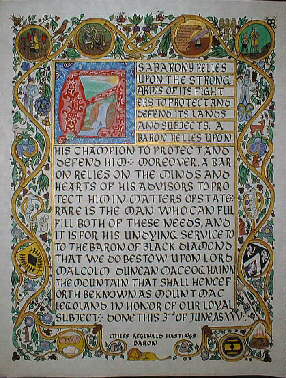 AS A BARONY RELIES
UPON THE STRONG
ARMS OF ITS FIGHT
ERS TO PROTECT AND
DEFEND ITS LANDS
AND SUBJECTS, A
BARON RELIES UPON
HIS CHAMPION TO PROTECT AND
DEFEND HIM. MOREOVER, A BAR
ON RELIES ON THE MINDS AND
HEARTS OF HIS ADVISORS TO PRO
TECT HIM IN MATTERS OF STATE.
RARE IS THE MAN WHO CAN FUL
FILL BOTH OF THESE NEEDS, AND
IT IS FOR HIS UNDYING SERVICE TO
TO THE BARON OF BLACK DIAMOND
THAT WE DO BESTOW UPON LORD
MALCOLM DUNCAN MACEOGHAINN
THE MOUNTAIN THAT SHALL HENCEF
ORTH BE KNOWN AS MOUNT MAC
EOGHAINN IN HONOR OF OUR LOYAL
SUBJECT. DONE THIS 3RD OF JUNE AS XXV
REGINALD
BARON